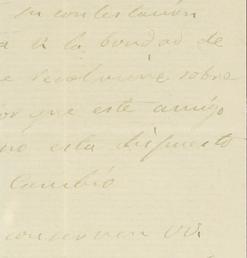 su contestación
a la bondad de
resolviere sobre
por que este amigo
no esta dispuesto
Cambio
conserven